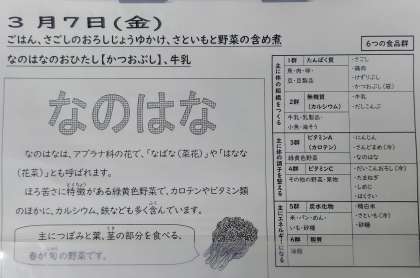 3月7日(金)
ごはん、さごしのおろしじょうゆかけ、さといもと野菜の含め煮
なのはなのおひたし【かつおぶし】、牛乳
なのはな
なのはなは、アブラナ科の花で、「なばな(菜花)」や「はなな
(花菜)」とも呼ばれます。
ほろ苦さに特徴がある緑黄色野菜で、カロテンやビタミン類
のほかに、カルシウム、鉄なども多く含んでいます。
主につぼみと葉、茎の部分を食べる、
春が旬の野菜です。
6つの食品群
主に体の組織をつくる
1群 たんぱく質
魚・肉・卵・
豆・豆製品
・さごし
・鶏肉
・けずりぶし
・かつおぶし
2群 無機質
(カルシウム)
牛乳・乳製品・
小魚・海そう
・牛乳
・だしこんぶ
主に体の調子を整える
3群 ビタミンA
(カロテン)
緑黄色野菜
・にんじん
・さんどまめ(冷)
・なのはな
4群 ビタミンC
その他の野菜・果物
・だいこんおろし(冷)
・たまねぎ
・しめじ
・ほうさい
主にエネルギーになる
5群 炭水化物
米・パン・めん・
いも・砂糖
・精白米
・さといも(冷)
・砂糖
6群 脂質
油脂